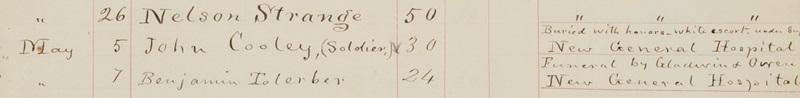 " 26 Nelson Strange 50 " " "
Buried with honors-white escort. under
May 5 John Cooley, (Soldier,) 30 New General Hospital
Funeral by Gladwin & Owen
" 7 Benjamin 24 New General Hospital